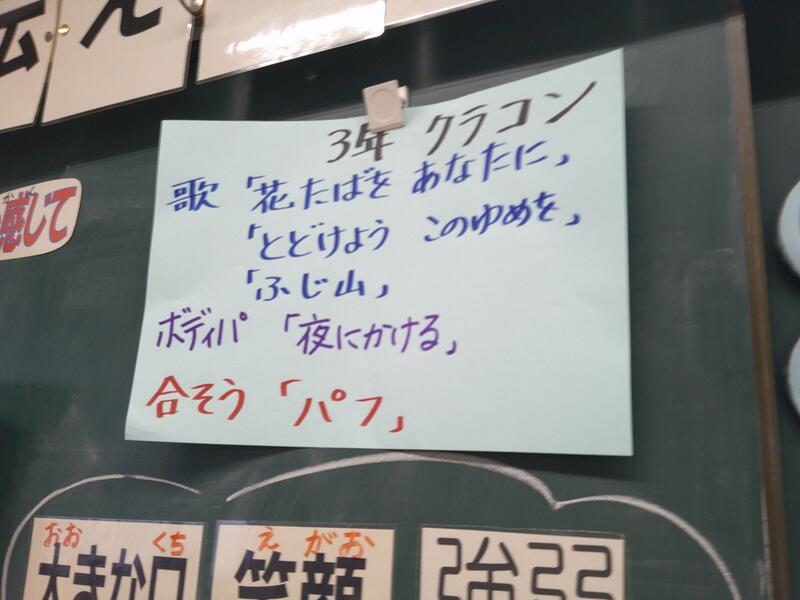 え
感じて
3年 クラコン
歌「花たばを あなたに」
「とどけよう このゆめを」
「ふじ山」
ボディパ 「夜にかける」
合そう 「パフ」
おお くち
大きな口
えがお
笑顔
強弱